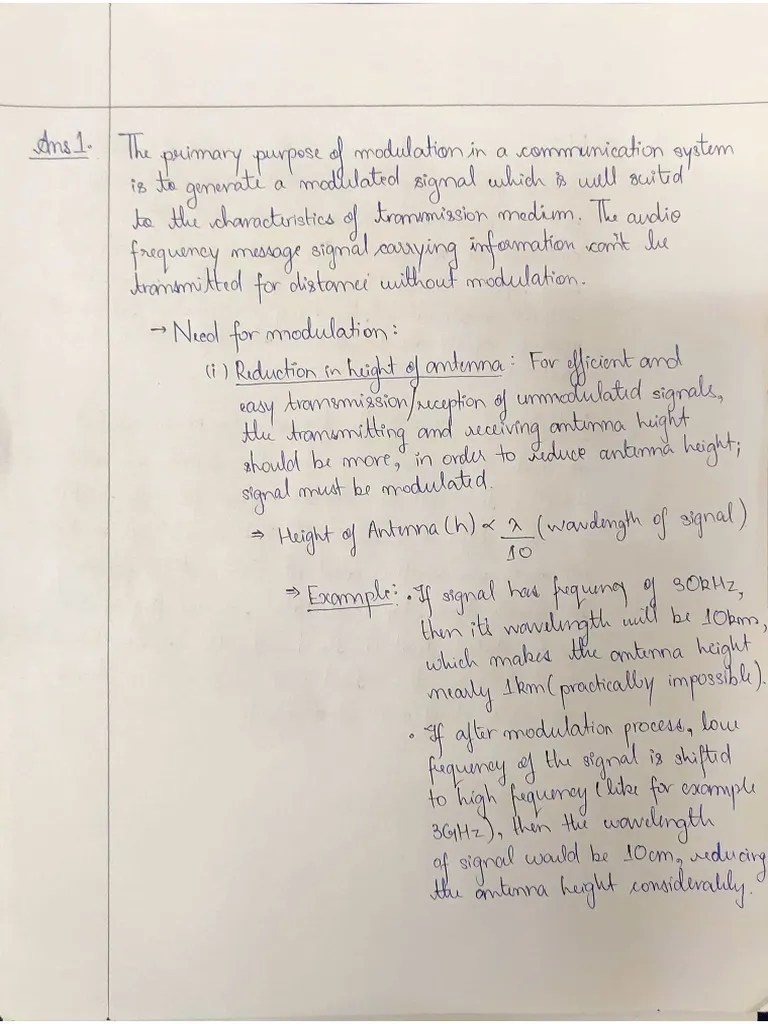 Ans 1. The primary purpose of modulation in a communication system
is to generate a modulated signal which is well suited
to the characteristics of transmission medium. The audio
frequency message signal carrying information can't be
transmitted for distance without modulation.
→ Need for modulation:
(i) Reduction in height of antenna: For efficient and
easy transmission/reception of unmodulated signals,
the transmitting and receiving antenna height
should be more, in order to reduce antenna height;
signal must be modulated.
⇒ Height of Antenna (h) ∝ λ/10 (wavelength of signal)
⇒ Example: • If signal has frequency of 30kHz,
then its wavelength will be 10km,
which makes the antenna height
nearly 1km (practically impossible).
• If after modulation process, low
frequency of the signal is shifted
to high frequency (like for example
3GHz), then the wavelength
of signal would be 10cm, reducing
the antenna height considerably.